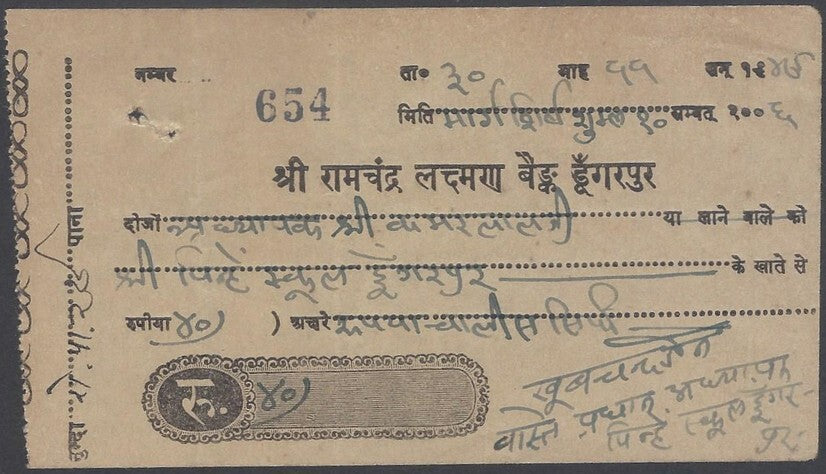 नम्बर 654 ता० ३० माह ११ सन् १९४९
मिति मार्ग शीर्ष शुक्ल १० सम्वत् २००६
श्री रामचंद्र लक्ष्मण बैङ्क डूँगरपुर
दीजो अध्यापक श्री लालजी या लाने वाले को
श्री पिन्हे स्कूल डूँगरपुर के खाते से
रुपीया ४०) ) अक्षरे रूपया चालीस सिर्फ
रु. ४०)
खूबचन्द जैन
वास्ते प्रधान अध्यापक
पिन्हे स्कूल डूंगर-
पुर